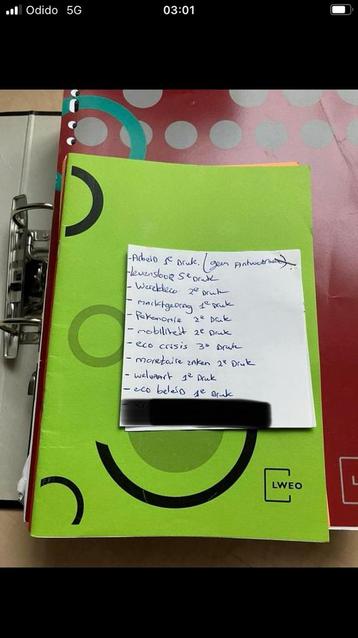 Odido 5G
03:01
- Arbeid 1e Druk. (geen Antwoorden)
- Levensloop 5e Druk
- Wereldeco 2e Druk
- marktgedrag 1e Druk
- Rekonomie 2e Druk
- mobiliteit 2e Druk
- eco crisis 3e Druk
- monetaire zaken 2e Druk
- welvaart 1e Druk
- eco beleid 1e Druk
LWEO
L